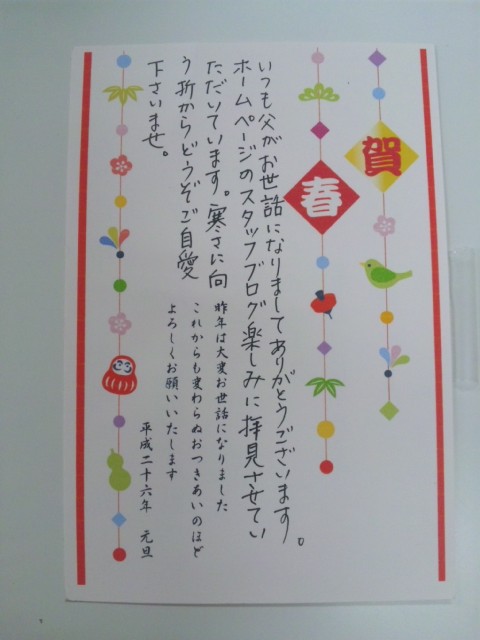 賀春
いつも父がお世話になりましてありがとうございます。
ホームページのスタッフブログ楽しみに拝見させてい
ただいています。寒さに向
う折からどうぞご自愛
下さいませ。
昨年は大変お世話になりました
これからも変わらぬおつきあいのほど
よろしくお願いいたします
平成二十六年 元旦